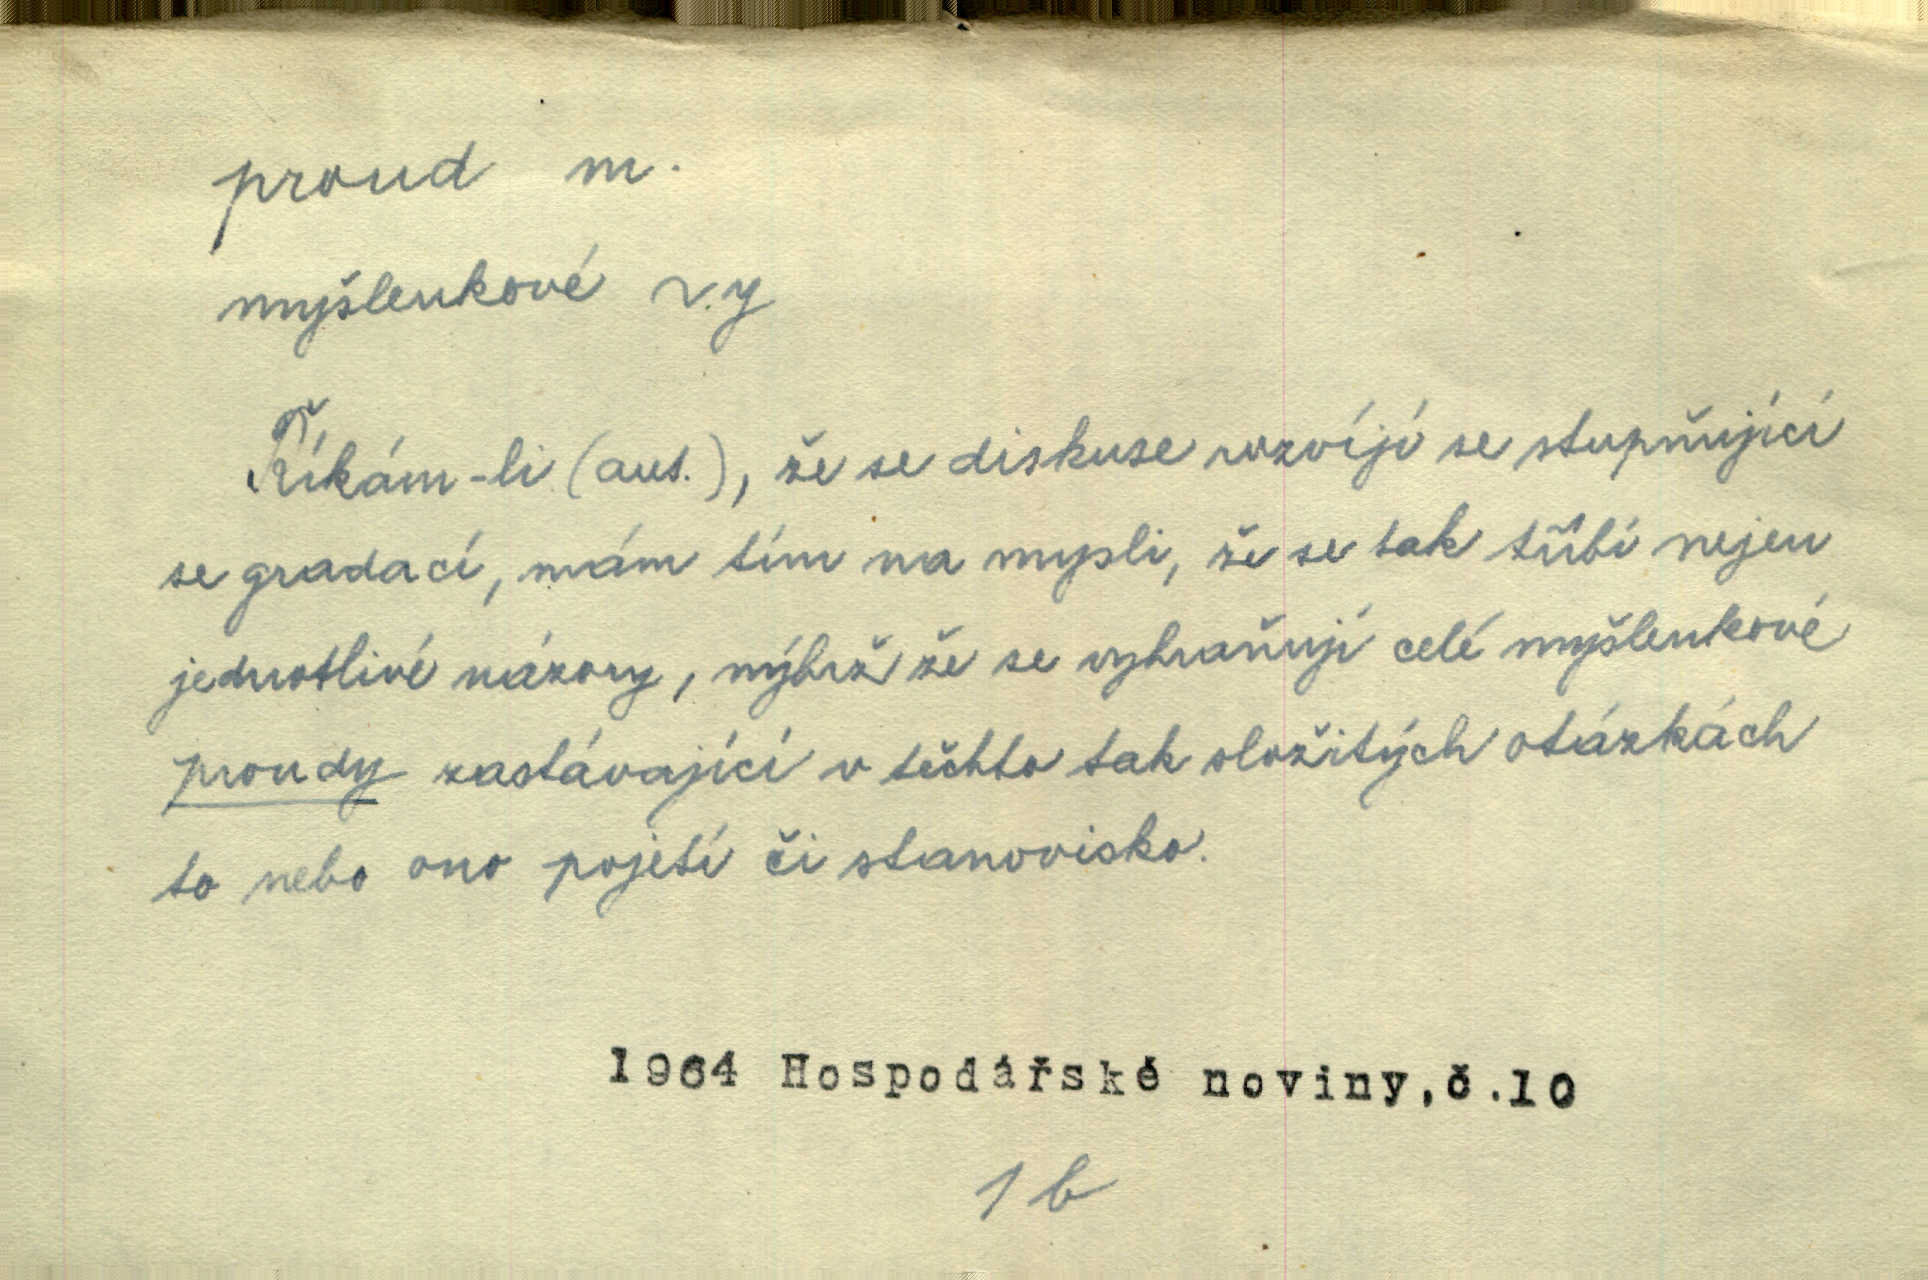 proud m.
myšlenkové ~y
Říkám-li (aut.), že se diskuse rozvíjí se stupňující
se gradací, mám tím na mysli, že se tak tříbí nejen
jednotlivé názory, nýbrž že se vyhraňují celé myšlenkové
proudy zastávající v těchto tak složitých otázkách
to nebo ono pojetí či stanovisko.
1964 Hospodářské noviny,č.10
1b